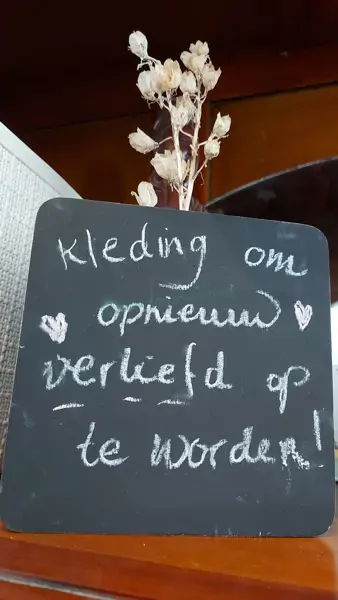 Kleding om
opnieuw
verliefd op
te worden!